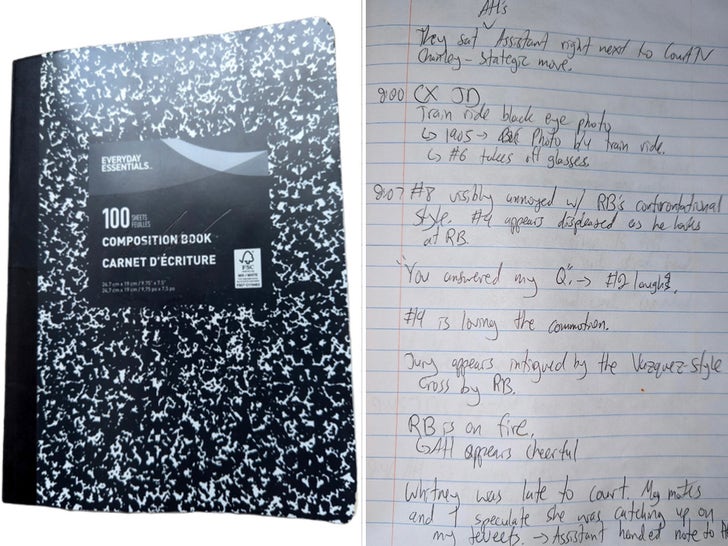 EVERYDAY
ESSENTIALS™
100 SHEETS
FEUILLES
COMPOSITION BOOK
CARNET D'ÉCRITURE
24.7 cm x 19 cm / 9.75" x 7.5"
24,7 cm x 19 cm / 9,75 po x 7,5 po
FSC
MIX
AH's
They sat Assistant right next to CourtTV
Chanley - Stategic move.
9:00 CX JD
Train ride black eye photo
↳ 1905 → Photo by train ride.
↳ #6 takes off glasses.
9:07 #8 visibly annoyed w/ RB's confrontational
style. #4 appears displeased as he looks
at RB.
"You answered my Q". → #12 laughs.
#14 is loving the commotion.
Jury appears intrigued by the Vazquez-style
cross by RB.
RB is on fire.
GAH appears cheerful
Whitney was late to court. My mates
and I speculate she was catching up on
my tweets. → Assistant handed note to